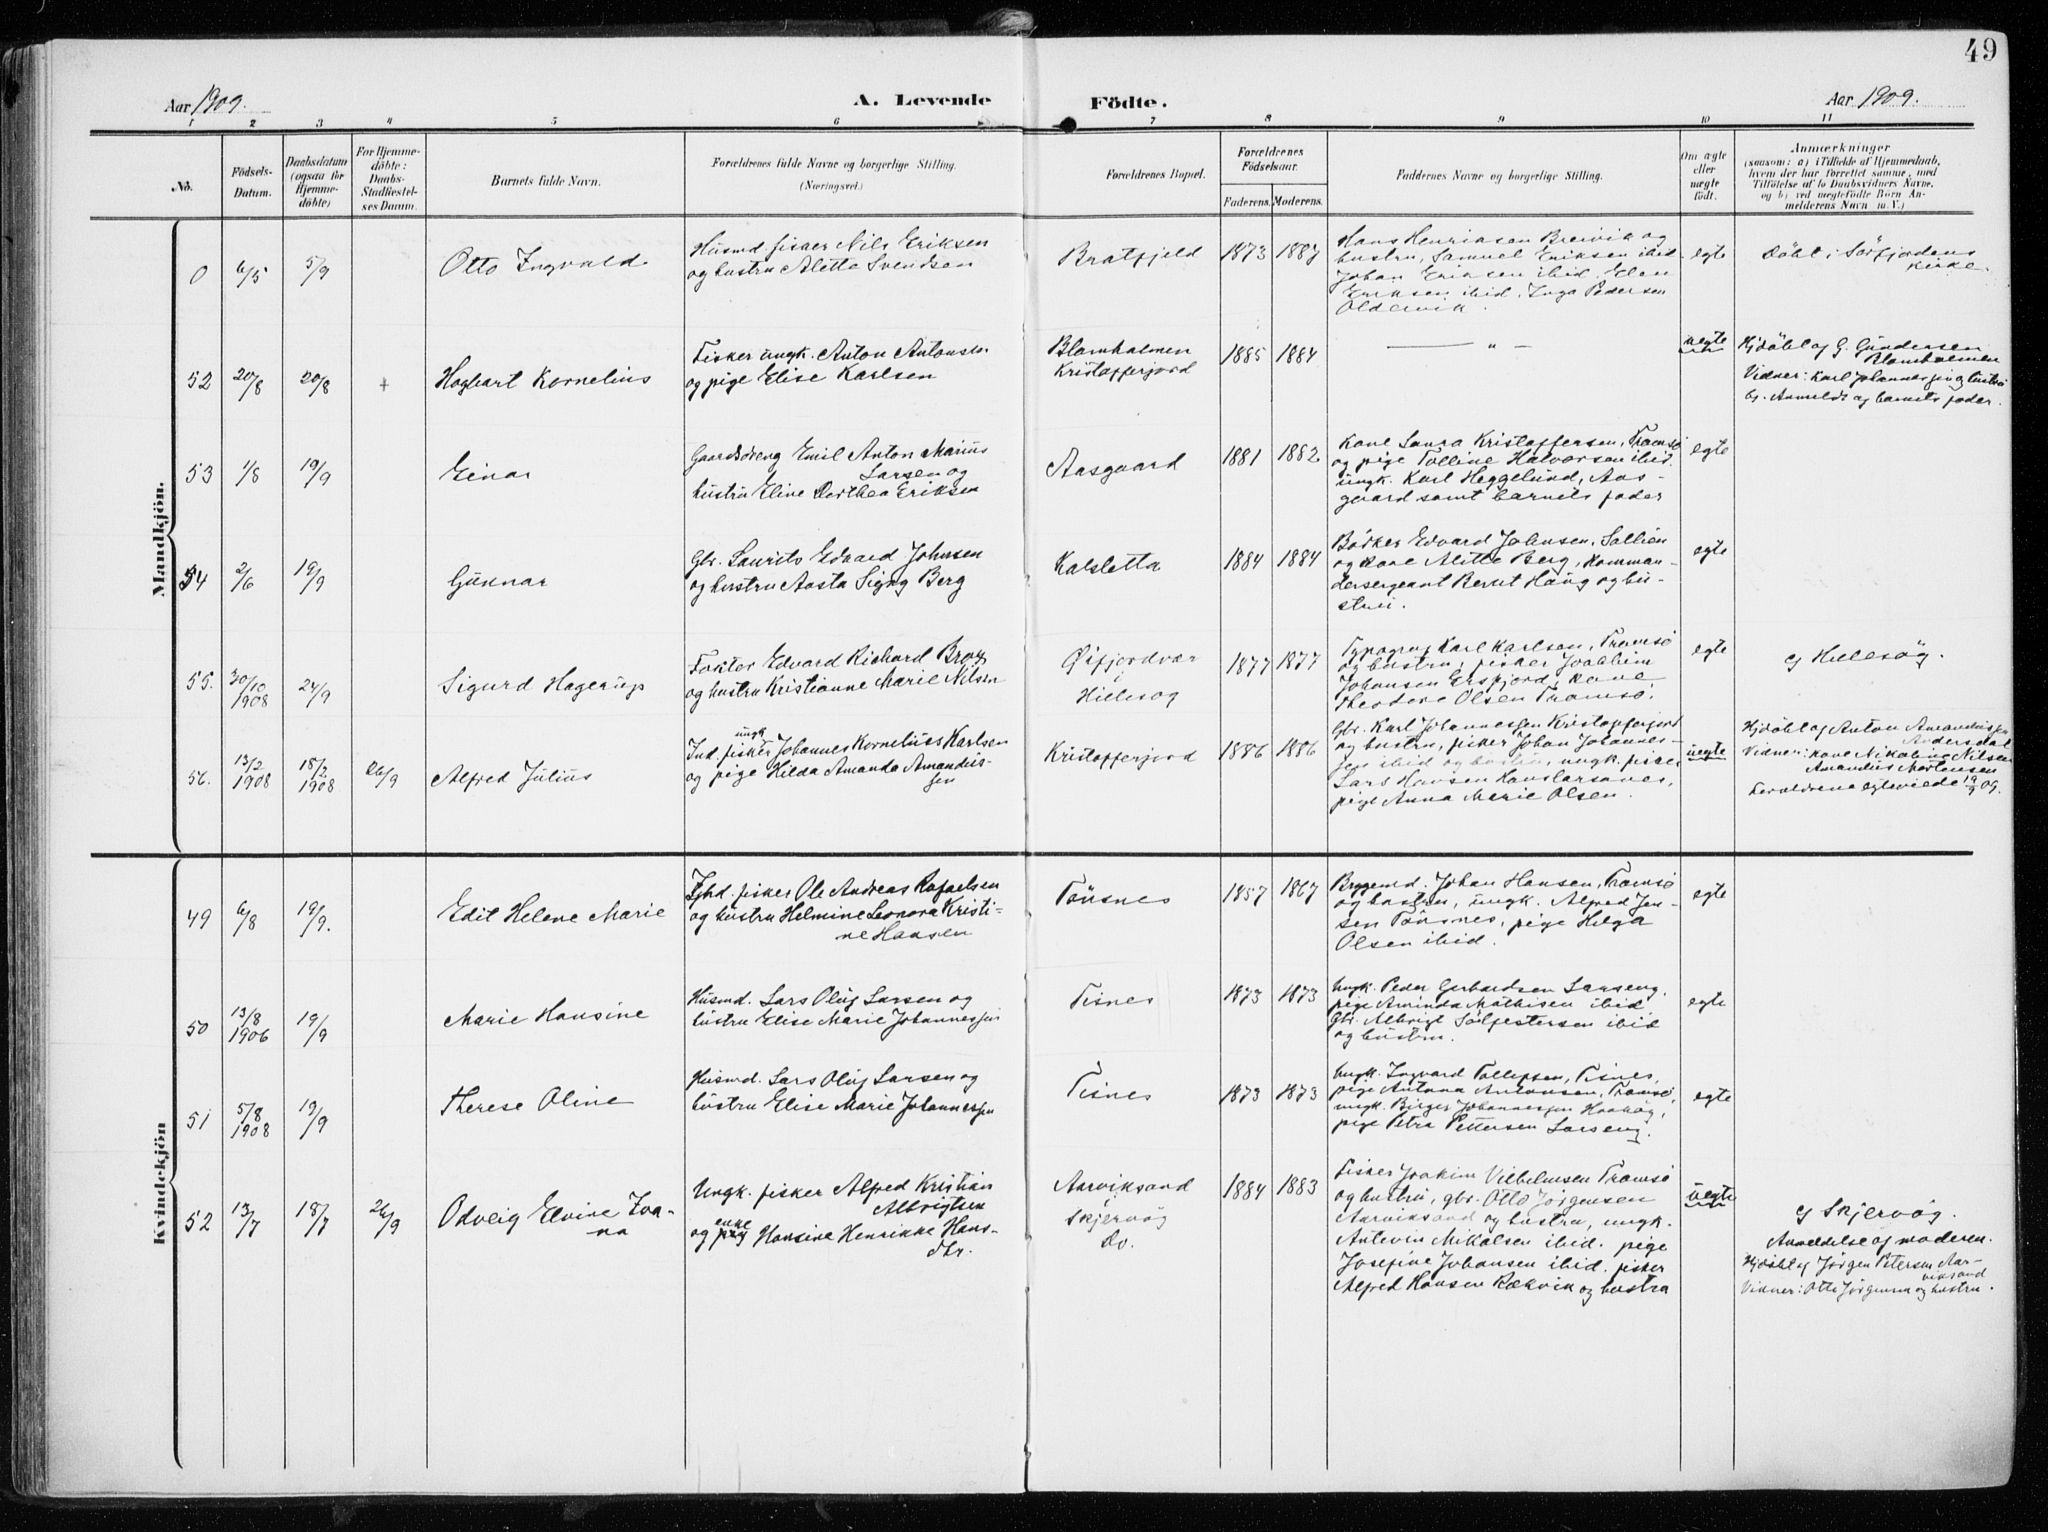 49
Aar 1909.
A. Levende Födte.
Aar 1909.
1 2 3 4 5 6 7 8 9 10 11
No.
Födsels-
Datum.
Daabsdatum
(ogsaa for
Hjemme-
döbte)
For Hjemme-
döbte:
Daabs-
Stadfæstel-
ses Datum.
Barnets fulde Navn.
Forældrenes fulde Navne og borgerlige Stilling.
(Næringsvei.)
Forældrenes Bopæl.
Forældrenes
Födselsaar.
Faderens. Moderens.
Faddernes Navne og borgerlige Stilling.
Om ægte
eller
uægte
födt.
Anmærkninger
(saasom: a) i Tilfælde af Hjemmedaab,
hvem der har forrettet samme, med
Tilföielse af to Daabsvidners Navne,
og b) ved uægtefödte Börn An-
melderens Navn m. V.)
Mandkjön.
0 6/5 5/9
Otto Ingvald
Husmd. fisker Nils Eriksen
og hustru Aletta Svendsen
Bratfjeld
1873 1887
Hans Henriksen Breivik og
hustru, Samuel Eriksen ibid.
Johan Eriksen ibid. Elen
Eriksen ibid. Inga Pedersen
Oldervik.
egte
Döbt i Sörfjordens
kirke.
52 20/8 20/8 +
Hogbart Kornelius
Fisker ungk. Anton Antonsen
og pige Elise Karlsen
Blomholmen
Kristofferjord
1885 1884
— „ —
uegte
Hjdöbt af G. Gundersen
Blomholmen
Vidner: Karl Johannessen og hustru
b. Anmeldt af barnets fader.
53 1/8 19/9
Einar
Gaardsdreng Emil Anton Marius
Larsen og
hustru Eline Dorthea Eriksen
Aasgaard
1881 1882
Kone Laura Kristoffersen, Tromsö
og pige Tolline Halvorsen ibid.
ungk. Karl Heggelund, Aas-
gaard samt barnets fader
egte
54 2/6 19/9
Gunnar
Gbr. Laurits Edvard Johnsen
og hustru Aasta Signy Berg
Kalsletta
1884 1884
Bödker Edvard Johnsen, Sollien
og kone Alette Berg, Komman-
dersergeant Bernt Haug og hu-
strui.
egte
55. 30/10 1908 24/9
Sigurd Hagerup
Edvard Richard Brox
og hustru Kristianne Marie Nilsen
Öifjordvær
i
Hillesög
1877 1877
Typograf Karl Karlsen, Tromsö
og hustru, fisker Joachim
Johansen Ersfjord, kone
Theodora Olsen Tromsö.
egte
cf Hillesög.
56. 13/2 1908 18/2 1908 26/9
Alfred Julius
ungk.
Ind. fisker Johannes Kornelius Karlsen
og pige Hilda Amanda Amandus-
sen
Kristofferjord
1886 1886
Gbr. Karl Johannessen Kristofferjord
og hustru, fisker Johan Johannes-
sen ibid og hustru, ungk. fisker
Lars Hansen Hanslarsanes,
pige Anna Marie Olsen.
uegte
Hjdöbt af Anton Amandussen
Andersdal
Vidner: kone Nikoline Nilsen
Amandus Mortensen
Forældrene egteviede 19/9 09.
Kvindekjön
49 6/8 19/9.
Edit Helene Marie
Ole Andreas Rafaelsen
og hustru Helmine Leonora Kristi-
ne Hansen
Tönsnes
1857 1867
Bryggemd. Johan Hansen, Tromsö
og hustru, ungk. Alfred Jen-
sen Tönsnes, pige Helga
Olsen ibid.
egte
50 13/8 1906 19/9
Marie Hansine
Husmd. Lars Oluf Larsen og
hustru Elise Marie Johannessen
Tisnes
1873 1873
Ungk. Peder Gerhardsen Larseng,
pige Aminda Mathisen ibid
Gbr. Albrigt Sölfestersen ibid
og hustru.
egte
51 5/8 1908 19/9
Therese Oline
Husmd. Lars Oluf Larsen og
hustru Elise Marie Johannessen
Tisnes
1873 1873
Ungk. Ingvard Tollefsen, Tisnes,
pige Antona Antonsen, Tromsö,
ungk. Birger Johannessen Haakög,
pige Petra Pettersen Larseng.
egte
52 13/7 18/7 26/9
Odveig Elvine Joa-
na
Ungk. fisker Alfred Kristian
Albrigtsen
enke
og pig Hansine Henrikke Hans-
dtr.
Aarviksand
Skjervög
Do.
1884 1883
Fisker Joakim Vilhelmsen Tromsö
og hustru, gbr. Otto Jörgensen
Aarviksand og hustru, ungk.
Antevin Nikolsen ibid. pige
Josefine Johansen ibid. fisker
Alfred Hansen Rækvik og hustru
uegte
cf Skjervög.
Anmeldelse af moderen.
Hjdöbt af Jörgen Petersen Aar-
viksand
Vidner: Otto Jörgensen og hustru.